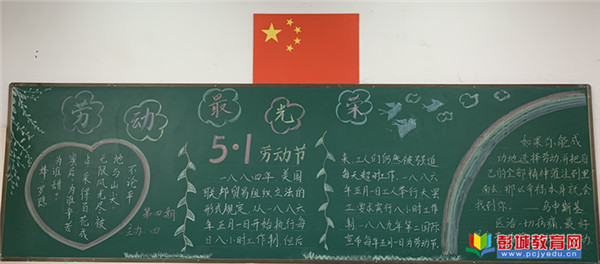 劳动最光荣
不论平
地与山尖
无限风光尽被
占采得百花成
蜜后为谁辛苦
为谁甜?
罗隐
第四期
5·1劳动节
一八八四年,美国
联邦贸易组织立法的
形式规定,从一八八六
年五月一日开始执行每
日八小时工作制,但后
来,工人们仍然被强迫
每天超时工作,一八八六
年五月一日人举行大罢
工要求实行八小时工作
制.一八八九年第二国际
宣布每年五月一日为劳动节
如果你能成
功地选择劳动,并把自
己的全部精神灌注到里
面去,那么幸福本身就会
找到你。——乌申斯基
医治一切病痛,最
彭城教育网
www.pcjyedu.cn